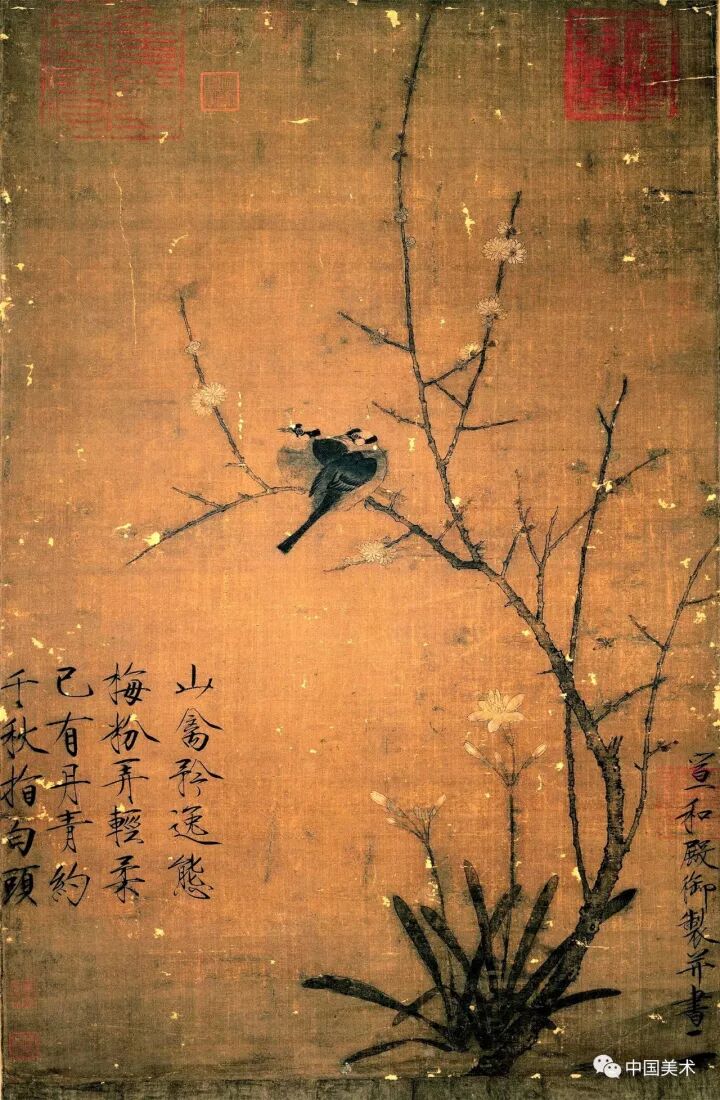 山禽矜逸態
梅粉弄輕柔
已有丹青約
千秋指白頭
宣和殿御製并書
中国美术